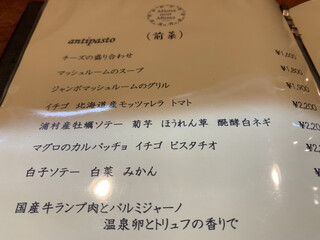 antipasto
(前菜)
チーズの盛り合わせ ¥1,600
マッシュルームのスープ ¥1,800
ジャンボマッシュルームのグリル ¥1,900
イチゴ 北海道産モッツァレラ トマト ¥2,200
浦村産牡蠣ソテー 菊芋 ほうれん草 醗酵白ネギ ¥2,2
マグロのカルパッチョ イチゴ ピスタチオ ¥2,20
白子ソテー 白菜 みかん ¥2,
国産牛ランプ肉とパルミジャーノ
温泉卵とトリュフの香りで